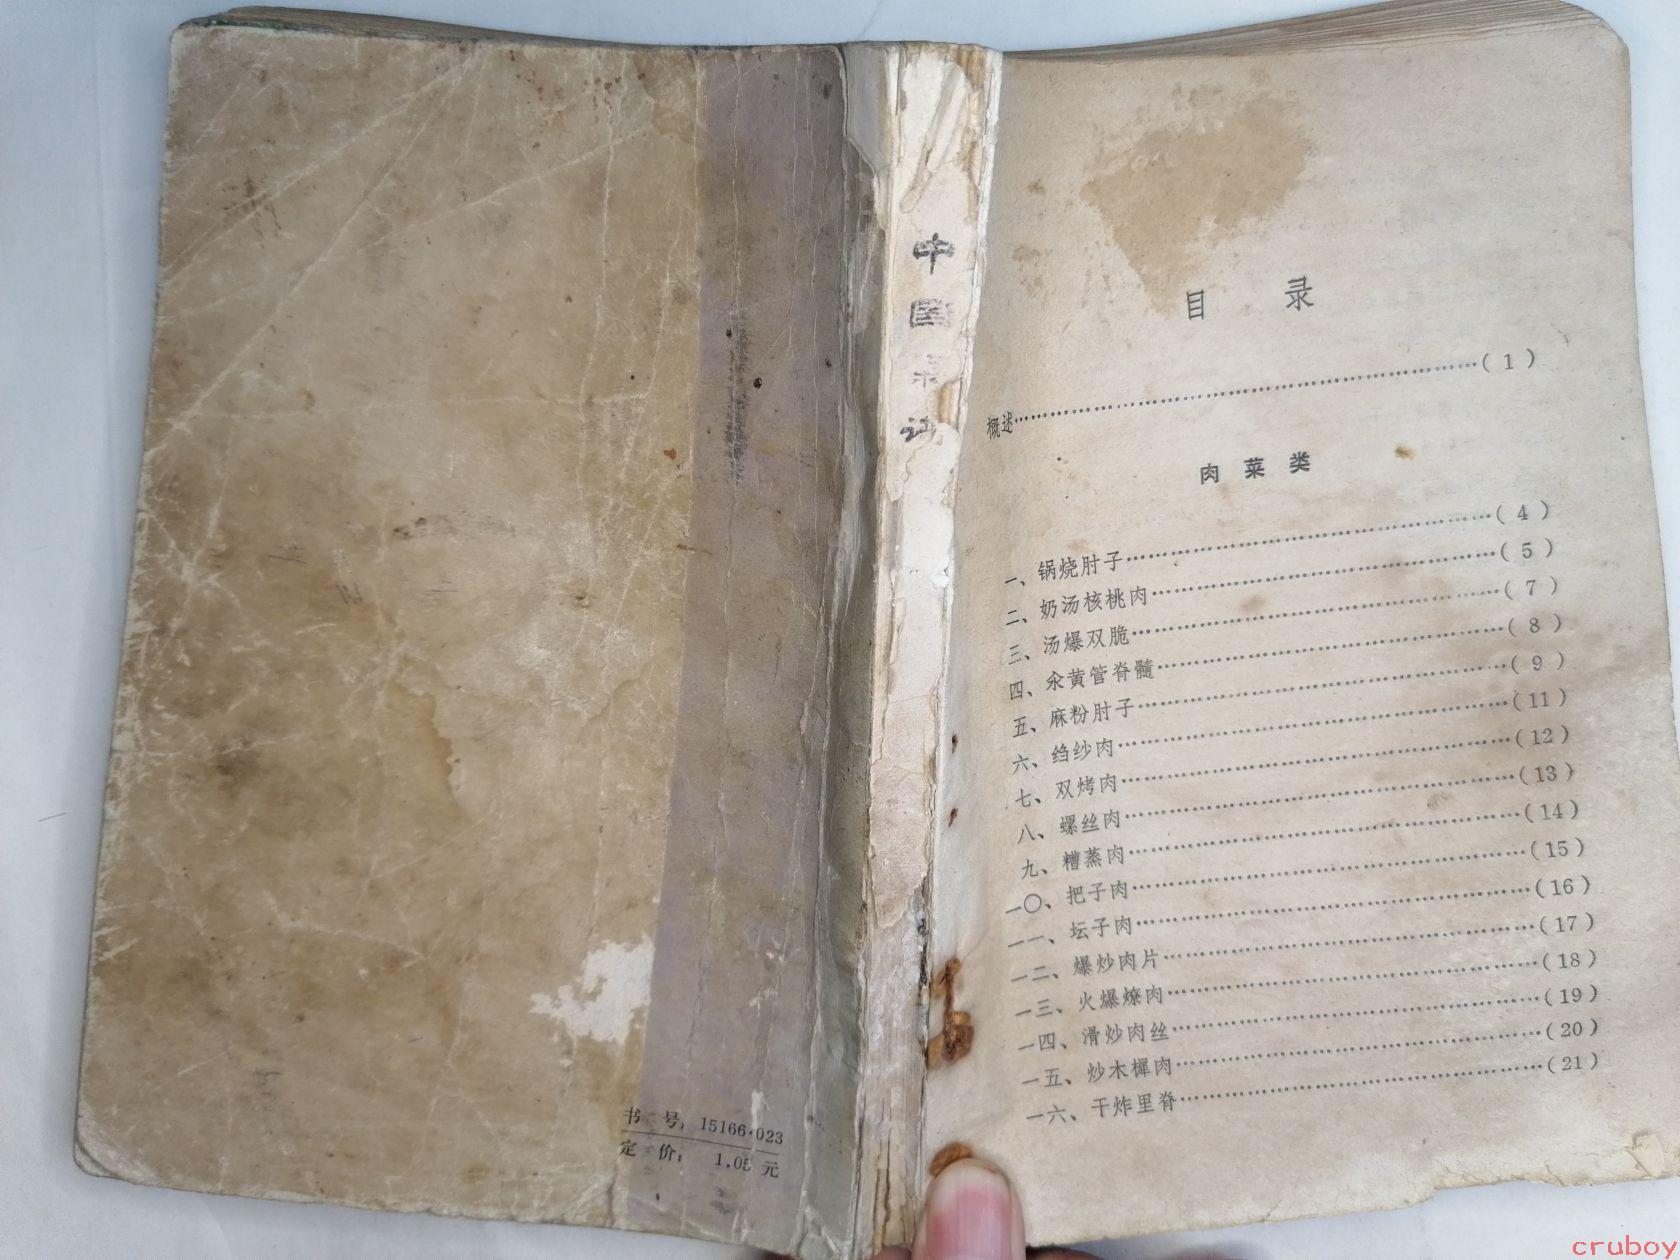 书 号：15166·023
定 价： 1.05 元
中国菜谱
目 录
概述……(1)
肉菜类
一、锅烧肘子……(4)
二、奶汤核桃肉……(5)
三、汤爆双脆……(7)
四、汆黄管脊髓……(8)
五、麻粉肘子……(9)
六、绉纱肉……(11)
七、双烤肉……(12)
八、螺丝肉……(13)
九、糟蒸肉……(14)
一〇、把子肉……(15)
一一、坛子肉……(16)
一二、爆炒肉片……(17)
一三、火爆燎肉……(18)
一四、滑炒肉丝……(19)
一五、炒木樨肉……(20)
一六、干炸里脊……(21)
cruboy